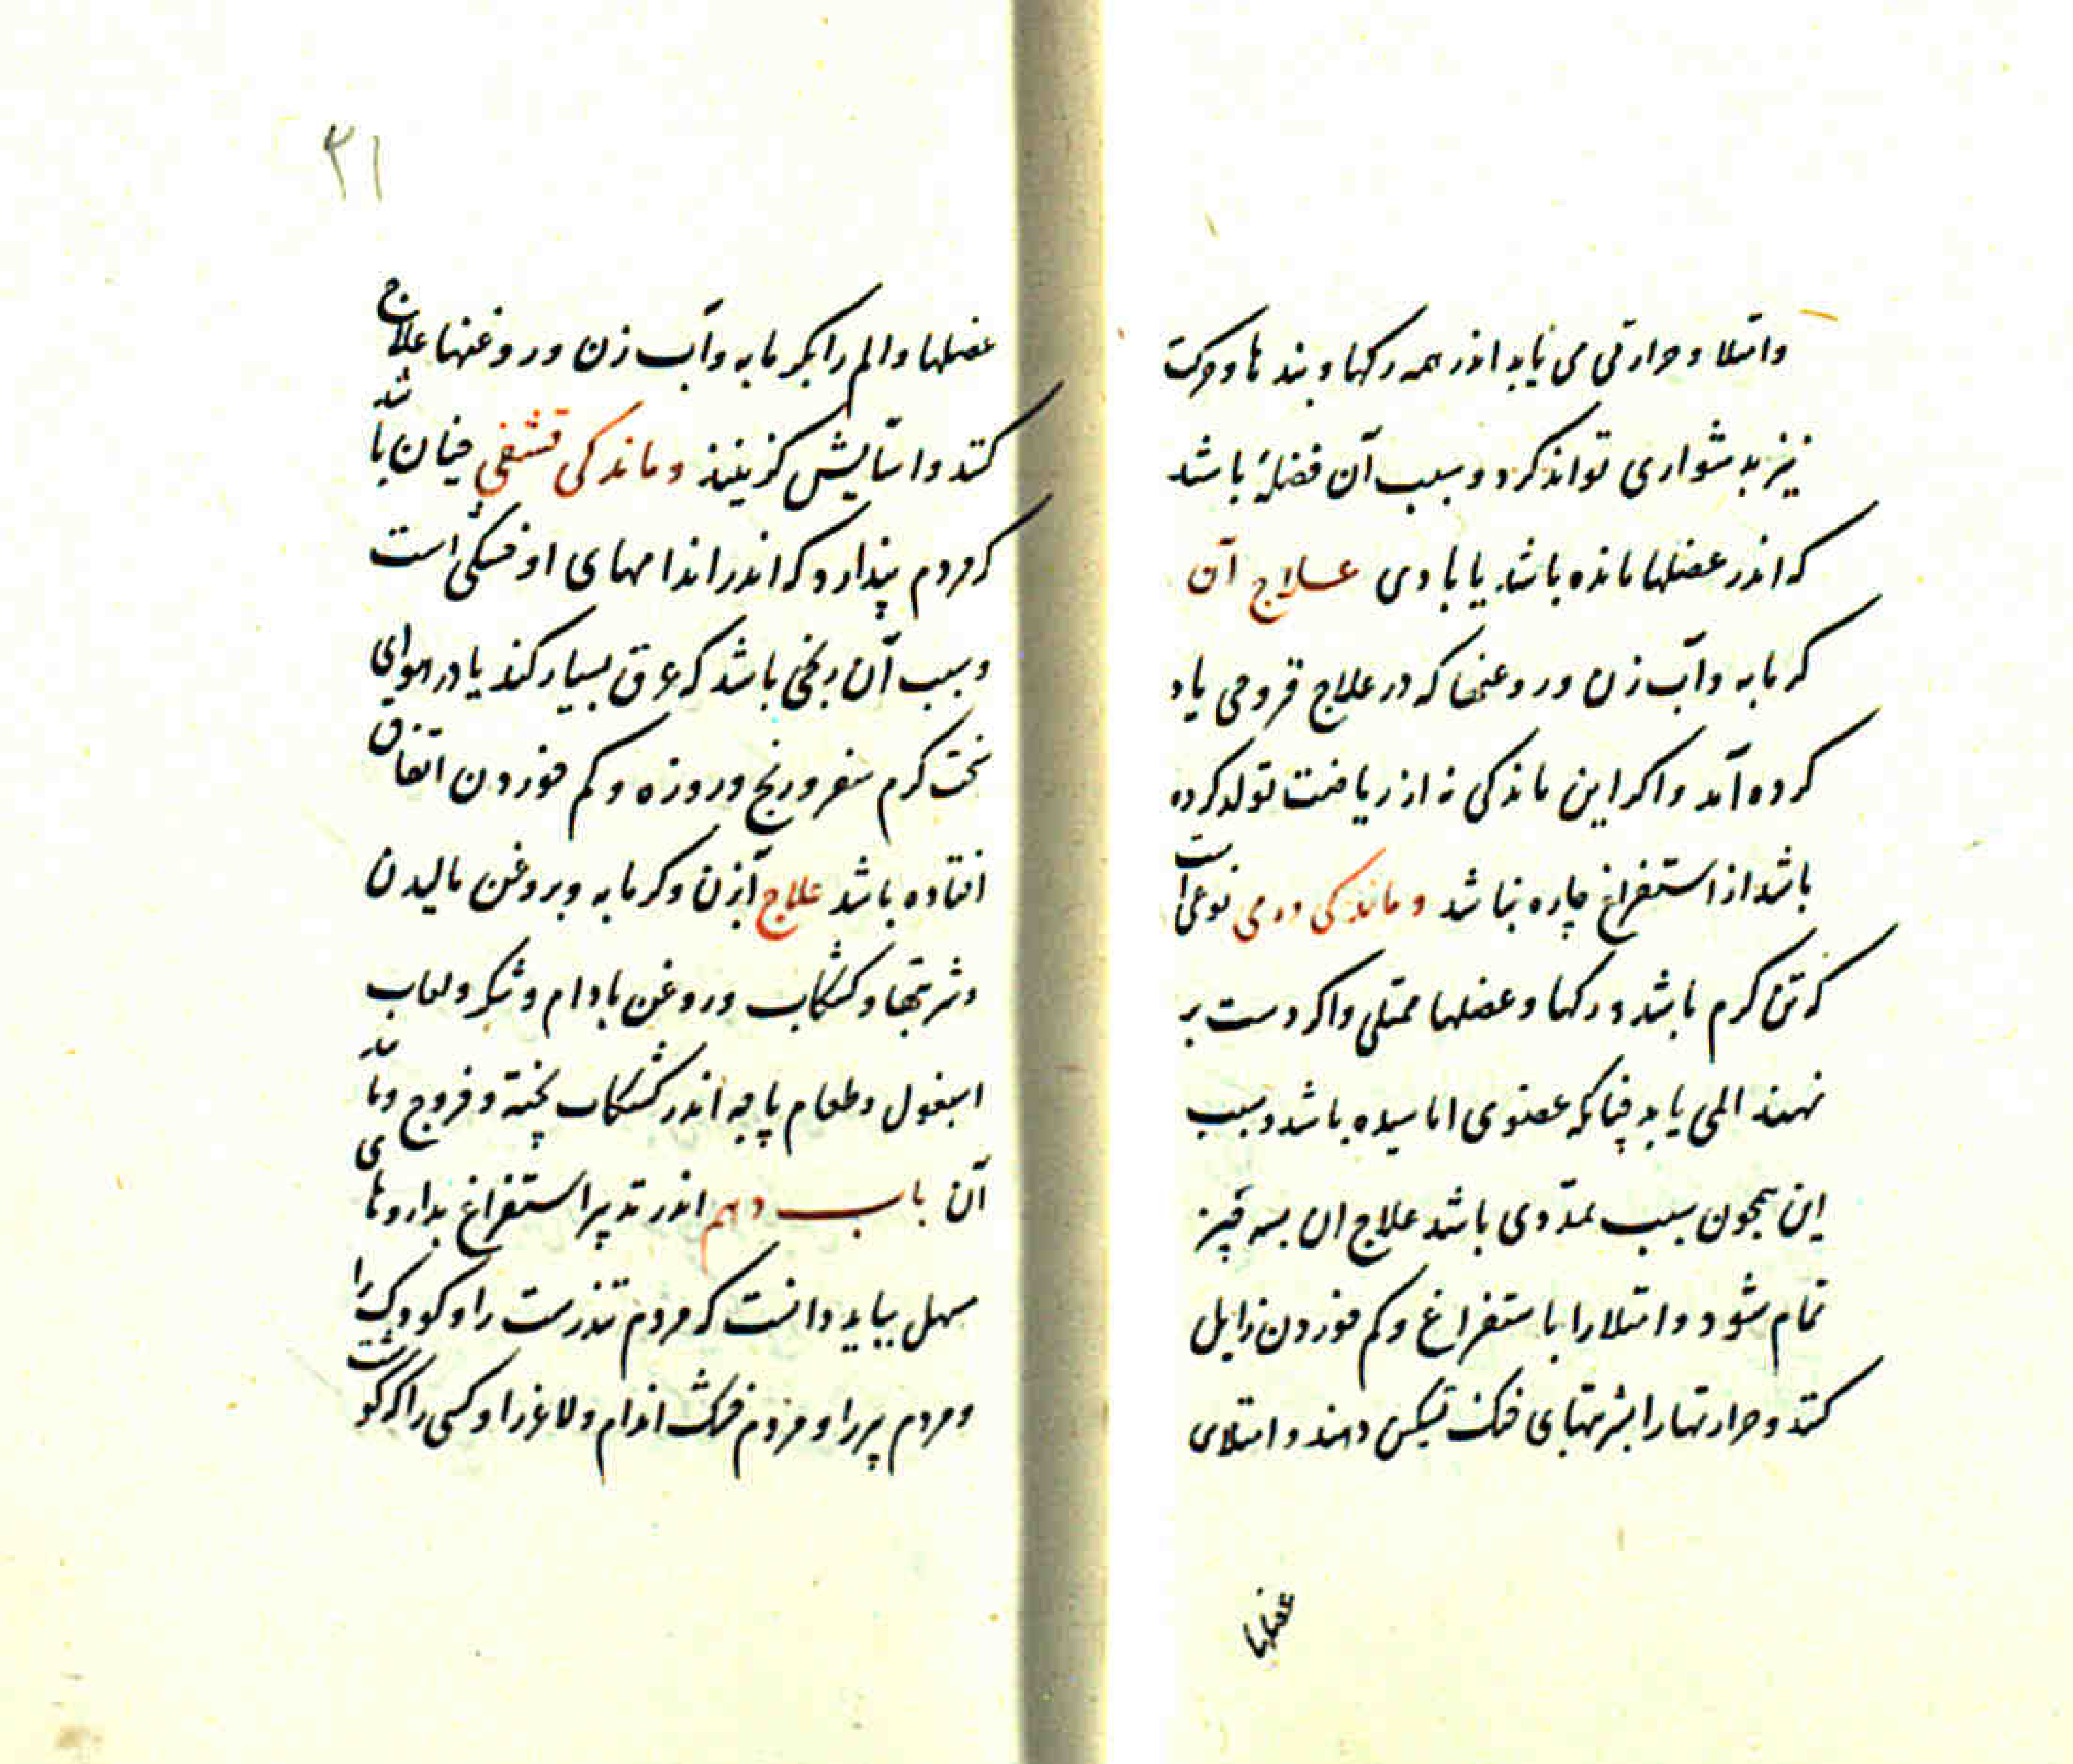 وامتلا و حرارتی می یابد اندر همه رکها و بندها و حرکت
نیز بدشواری تواند کرد و سبب آن فضلهٔ باشد
که اندر عضلها مانده باشد یا بادی علاج آن
کرمابه و آب زن و روغنها که در علاج قروحی یاد
کرده آمد و اکر این ماندکی نه از ریاضت تولد کرده
باشد از استفراغ چاره نباشد و ماندکی ورمی نوعی است
که تن کرم باشد و رکها و عضلها ممتلی و اکر دست بر
نهند المی یابد چنانکه عضوی اماسیده باشد و سبب
این همچون سبب تمدّدی باشد علاج ان بسه چیز
تمام شود و امتلا را باستفراغ و کم خوردن زایل
کنند و حرارتها را بشربتهای خنک تسکین دهند و امتلای
عضلها
۳۱
عضلها و الم را بکرمابه و آب زن و روغنها علاج
کنند و اسایش کزینند و ماندکی قشفی چنان باشد
که مردم پندارد که اندر اندامهای او خشکی است
و سبب آن رنجی باشد که عرق بسیار کند یا در هوای
سخت کرم سفر و رنج و روزه و کم خوردن اتفاق
افتاده باشد علاج آبزن و کرمابه و بروغن مالیدن
و شربتها و کشکاب و روغن بادام و شکر و لعاب
اسبغول و طعام پاچه اندر کشکاب پخته و فروج و مانند
آن باب دهم اندر تدبیر استفراغ بداروهای
مسهل بباید دانست که مردم تندرست را و کودک را
و مردم پیر را و مردم خشک اندام و لاغر را و کسی را که کوشت